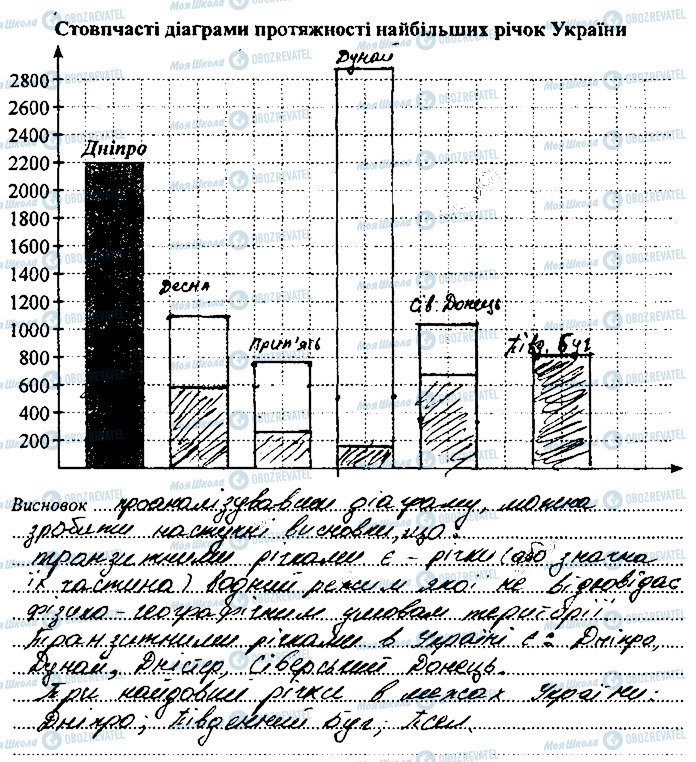 Стовпчасті діаграми протяжності найбільших річок України
Дунай
2800
2600
2400
Дніпро
2200
2000
1800
1600
1400
Десна
1200
Сів. Донець
1000
Прип'ять
Півд. Буг
800
600
400
200
Висновок проаналізувавши діаграму, можна
зробити наступні висновки, що:
транзитними річками є - річки (або значна
їх частина) водний режим якої не відповідає
фізико-географічним умовам території.
Транзитними річками в Україні є: Дніпро,
Дунай, Дністер, Сіверський Донець.
Три найдовші річки в межах України:
Дніпро; Південний Буг; Псел.
МояШкола OBOZREVATEL